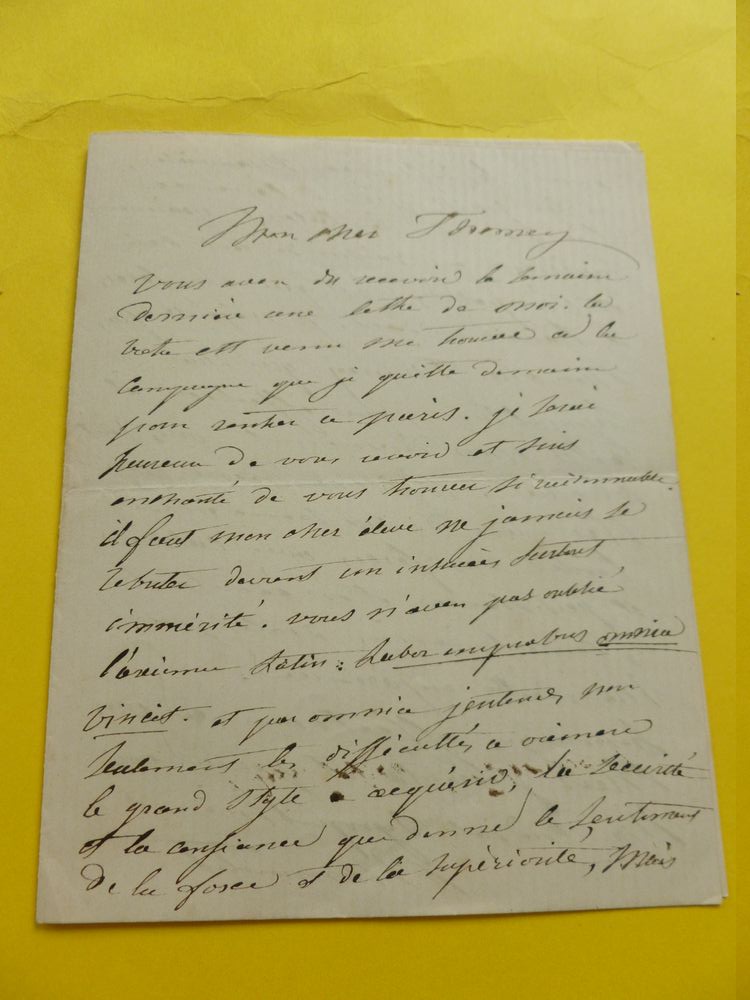 Mon cher
Vous avez dû recevoir la semaine
dernière une lettre de moi. la
votre est venue me trouver à la
campagne que je quitte demain
pour rentrer a paris. je serai
heureux de vous revoir et suis
enchanté de vous trouver si
il faut mon cher élève ne jamais se
rebuter devant un insuccès surtout
immérité. vous n'avez pas oublié
l'axiome Latin : Labor improbus omnia
vincit. et par omnia j'entends non
seulement les difficultés a vaincre
le grand style a acquérir, la sécurité
et la confiance que donne le sentiment
de la force et de la supériorité, Mais